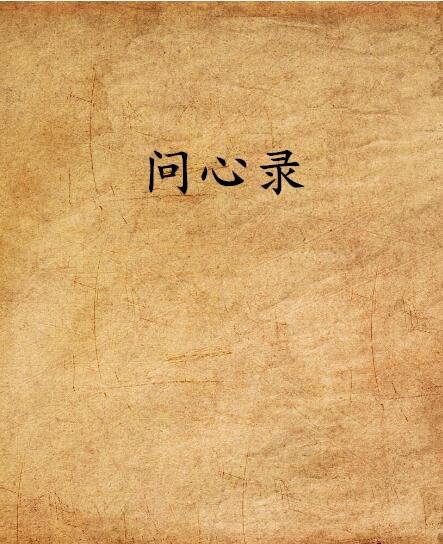 问心录